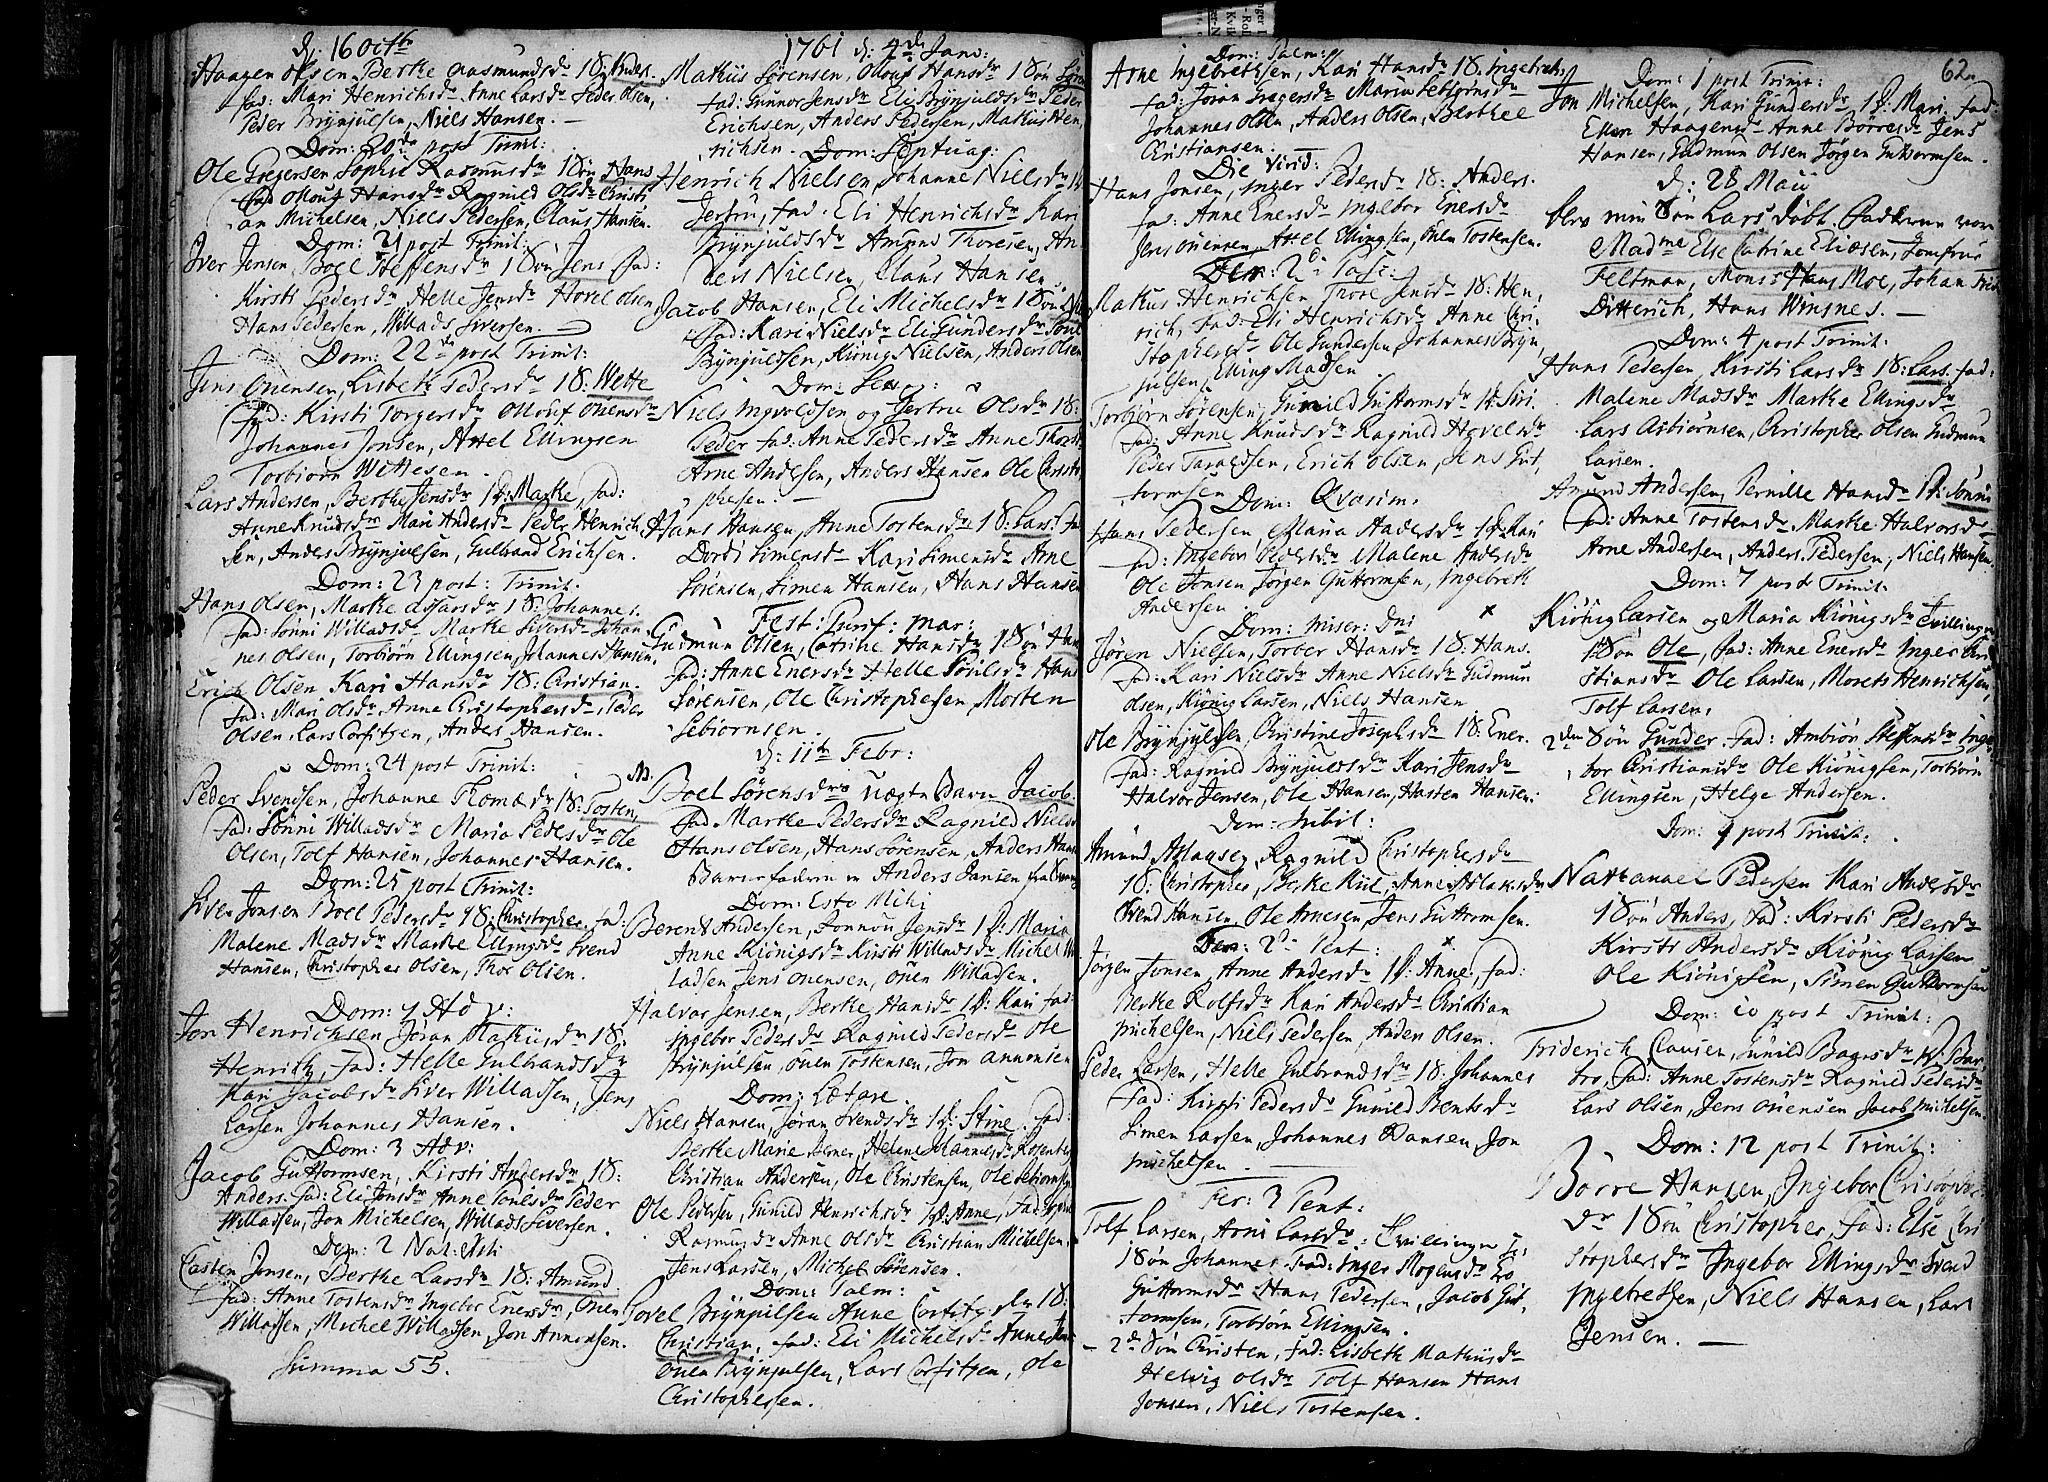 d: 16 Octbr
Haagen Olsen Berthe Aasmundsdr 1 S: Anders.
fad: Mari Henrichsdr Anne Larsdr Peder Olsen,
Peder Brynjulsen, Niels Hansen. —
Dom: 20de post Trinit:
Ole Gregersen Sophie Rasmusdr 1 Søn Hans
fad Olouf Hansdr Ragnild Olsdr Christi
an Michelsen, Niels Pedersen, Claus Hansen.
Dom: 21 post Trinit:
Iver Jensen, Boel Steffensdr 1 Søn Jens fad:
Kirsti Pedersdr Helle Jensdr Hovel Olsen,
Hans Pedersen, Willads Siversen. —
Dom: 22de post Trinit:
Jens Onensen, Lisbeth Pedersdr 1 S: Wette
fad: Kirsti Torgersdr Olouf Onensdr
Johannes Jonsen, Axel Ellingsen
Torbiørn Wettesen.
Lars Andersen, Berthe Jensdr 1 P: Marthe, fad:
Anne Knudsdr Mari Andersdr Peder Henrich
sen, Anders Brynjulsen, Gulbrand Erichsen.
Dom: 23 post: Trinit.
Hans Olsen, Marthe Assarsdr 1 S: Johannes.
fad: Sønni Willadsdr Marthe Siversdr Johan
nes Olsen, Torbiørn Ellingsen, Johannes Hansen,
Erich Olsen, Kari Hansdr 1 S: Christian.
fad: Mari Olsdr Anne Christophersdr Peder
Olsen, Lars Corfitzen, Anders Hansen.
Dom: 24 post Trinit:
Peder Svendsen, Johanne Thomædr 1 S: Tosten,
fad: Sønni Willadsdr Maria Pedersdr Ole
Olsen, Tolf Hansen, Johannes Hansen.
Dom: 25 post Trinit:
Siver Jonsen Boel Pedersdr 1 S: Christopher. fad:
Malene Madsdr Marthe Ellingsdr Svend
Hansen, Christopher Olsen, Thor Olsen.
Dom: 1 Adv:
Jon Henrichsen Jøran Mathiisdr 1 S.
Henrich, fad: Helle Gulbrandsdr
Kari Jacobsdr Siver Willadsen, Jens
Larsen Johannes Hansen.
Dom: 3 Adv:
Jacob Guttormsen, Kirsti Andersdr 1 S:
Anders. fad: Eli Jonsdr Anne Povelsdr Peder
Willadsen, Jon Michelsen, Willads Siversen.
Dom: 2 Nat: Xsti
Casten Jonsen, Berthe Larsdr 1 S: Amund.
fad: Anne Tostensdr Ingebor Enersdr, Onen
Willadsen, Michel Willadsen, Jon Annonsen.
Summa 55.
1761 d: 4de Janv:
Mathis Sørensen, Olouf Hansdr 1 Søn Søren
fad: Gunnor Jensdr Eli Brynjuldsdr Peder
Erichsen, Anders Pedersen, Mathis Hen,
richsen. Dom: Septuag:
Henrich Nielsen, Johanne Nielsdr
Jertrü, fad: Eli Henrichsdr Kari
Brynjuldsdr Amund Thoresen, An
ders Nielsen, Claus Hansen.
Jacob Hansen, Eli Michelsdr 1 Søn
fad: Kari Nielsdr Eli Gundersdr
Brynjuldsen, Kiønig Nielsen, Anders Olsen
Dom: Sexag:
Niels Ingvoldsen og Jertrü Olsdr 1 S:
Peder fad: Anne Pedersdr Anne
Arne Andersen, Anders Hansen Ole Christo
phersen. —
Hans Hansen, Anne Tostensdr 1 S: Lars. fad
Dordi Simensdr Kari Simensdr Arne
Sørensen, Simen Hansen, Hans Hansen
Fest: Purif: Mar:
Gudmun Olsen, Catrine Hansdr 1 Søn Hans
fad: Anne Enersdr Helle Povelsdr Hans
Sørensen, Ole Christophersen Morten
Sebiørnsen.
d: 11te Febr:
Boel Sørensdrs uægte Barn Jacob.
fad Marthe Pedersdr Ragnild Niels
Hans Olsen, Hans Sørensen, Anders Hans
Barnefaderen er Anders Jansen fra
Dom: Esto Mihi
Berent Andersen, Jonnou Jensdr 1 P: Maria
Anne Kiønigsdr Kirsti Willadsdr Michel Wil
ladsen Jens Onensen, Onen Willadsen.
Halvor Jensen, Berthe Hansdr 1 P: Kari fad:
Ingebor Pedersdr Ragnild Pedersdr Ole
Brynjulsen, Onen Tostensen, Jon Annonsen
Dom: Lætare.
Niels Hansen, Jøran Svendsdr 1 P: Stine. fad:
Berthe Marie, Helene Johannesdr Rosenberg
Christian Andersen, Ole Christensen, Ole Sebiørnsen
Ole Pedersen, Gunild Henrichsdr 1 P: Anne, fad:
Rasmusdr Anne Olsdr Christian Michelsen,
Jens Larsen, Michel Sørensen.
Dom: Palm:
Hovel Brynjulsen Anne Corfitzdr 1 S:
Christian, fad: Eli Michelsdr Anne
Onen Brynjulsen, Lars Corfitsen, Ole
Christophersen.
Dom: Palm:
Arne Ingebrethsen, Kari Hansdr 1 S. Ingebreth,
fad: Jøran Gregersdr Maria Sebiørnsdr
Johannes Olsen, Anders Olsen, Berthel
Christiansen.
Die Virid:
Hans Jonsen, Inger Pedersdr 1 S: Anders.
fad: Anne Enersdr Ingebor Enersdr
Jens Onensen, Axel Ellingsen, Onen Tostensen.
Fer: 2di Pasc:
Mathis Henrichsen, Thore Jensdr 1 S: Hen,
rich, fad: Eli Henrichsdr Anne Chri,
stophersdr Ole Gundersen, Johannes Bryn,
julsen, Elling Madsen
Torbiørn Sørensen, Gunild Guttormsdr 1 P: Siri.
fad: Anne Knudsdr Ragnild Hovelsdr
Peder Taraldsen, Erich Olsen, Jens Gut,
tormsen Dom: Qvasim.
Hans Pedersen, Maria Andersdr 1 P: Kari
fad: Ingebor Pedersdr Malene Andersdr
Ole Jonsen, Jørgen Guttormsen, Ingebreth
Andersen.
Dom: Miser: Dni
Jøren Nielsen, Torber Hansdr 1 S: Hans.
fad: Kari Nielsdr Anne Nielsdr Gudmun
Olsen, Kiønig Larsen, Niels Hansen
Ole Brynjulsen, Christine Josephsdr 1 S: Ener.
fad: Ragnild Brynjulsdr Kari Jensdr
Halvor Jensen, Ole Hansen, Hasten Hansen.
Dom: Jubil:
Amund Aslagsen, Ragnild Christophersdr
1 S: Christopher, Berthe Kiil, Anne Aslaksdr
Svend Hansen, Ole Arnesen, Jens Guttormsen.
Fer: 2di Pent:
Jørgen Jonsen, Anne Andersdr 1 P: Anne, fad:
Berthe Rolfsdr Kari Andersdr Christian
Michelsen, Niels Pedersen, Anders Olsen.
Peder Larsen, Helle Gulbrandsdr 1 S: Johannes
fad: Kirsti Pedersdr Gunild Bentsdr
Simen Larsen, Johannes Hansen, Jon
Michelsen. —
Fer: 3 Pent:
Tolf Larsen, Arni Larsdr: Tvillinger
1 Søn Johannes fad: Inger Mogensdr
Guttormsdr Hans Pedersen, Jacob Gut,
tormsen, Torbiørn Ellingsen.
— 2de Søn Christen, fad: Lisbeth Mathiisdr
Helvig Olsdr Tolf Hansen Hans
Jonsen, Niels Tostensen.
62.
Dom: 1 post Trinit:
Jon Michelsen, Kari Gundersdr 1 P. Mari, fad:
Ellen Haagensdr Anne Børresdr Jens
Hansen, Gudmun Olsen Jørgen Guttormsen.
d: 28 Maii
blev min Søn Lars døbt, Fadderne vare
Madme Else Catrine Eliæsen, Jomfrue
Feltman, Monsr Hans Moe, Johan Frid
Ditterich, Hans Winsnes. —
Dom: 4 post Trinit:
Hans Pedersen, Kirsti Larsdr 1 S: Lars. fad:
Malene Madsdr Marthe Ellingsdr
Lars Asbiørnsen, Christopher Olsen Gudmun
Larsen.
Amund Andersen, Pernille Hansdr 1 P: Sønni
fad: Anne Tostensdr Marthe Halvorsdr
Arne Andersen, Anders Pedersen, Niels Hansen,
Dom: 7 post Trinit:
Kiønig Larsen og Maria Kiønigsdr Tvillinger
1 Søn Ole, fad: Anne Enersdr Inger Chri
stiansdr Ole Larsen, Morets Henrichsen,
Tolf Larsen,
2den Søn Gunder. fad: Ambiør Steffensdr Inge
bor Christiansdr Ole Kiønigsen, Torbiørn
Ellingsen, Helge Andersen.
Dom: 9 post Trinit:
Nathanael Pedersen Kari Andersdr
1 Søn Anders, fad: Kirsti Pedersdr
Kirsti Andersdr Kiønig Larsen
Ole Kiønigsen, Simen Guttormsen
Dom: 10 post Trinit:
Friderich Clausen, Gunild Bagesdr 1 P: Bar,
bro, fad: Anne Tostensdr Ragnild Pedersdr
Lars Olsen, Jens Onensen Jacob Michelsen
Dom: 12 post Trinit:
Børre Hansen, Ingebor Christopher
dr 1 Søn Christopher, fad: Else Chri
stophersdr Ingebor Ellingsdr Svend
Ingebretsen, Niels Hansen, Lars
Jensen. —